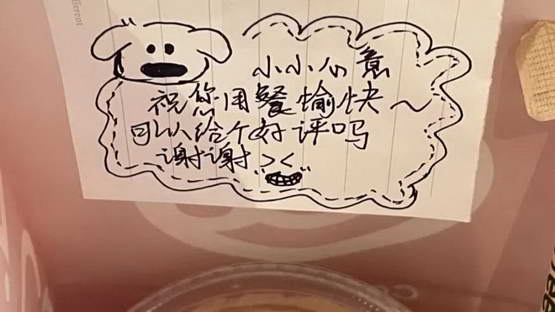 小小心意
祝您用餐愉快~
可以给个好评吗
谢谢 ><